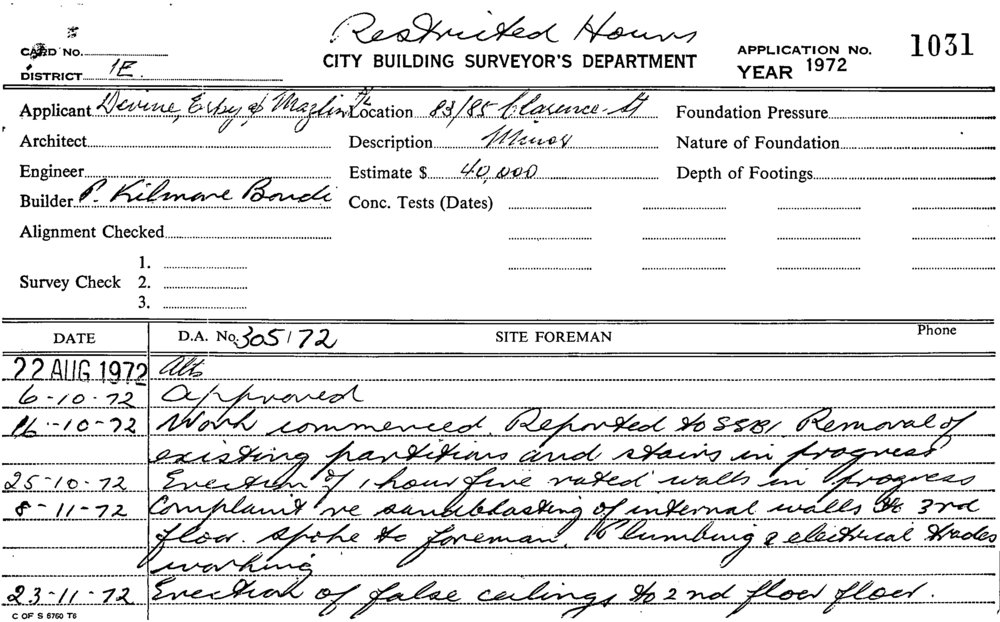 Restricted Hours
CARD No.
CITY BUILDING SURVEYOR'S DEPARTMENT
APPLICATION No. 1031
DISTRICT 1E.
YEAR 1972
Applicant Devine, Erby & Mazlin Location 83/85 Clarence St Foundation Pressure
Architect Description Minor Nature of Foundation
Engineer Estimate $ 40,000 Depth of Footings
Builder P. Kilmore Bondi Conc. Tests (Dates)
Alignment Checked
1.
Survey Check 2.
3.
DATE D.A. No. 305/72 SITE FOREMAN Phone
22 AUG 1972 Alts
6-10-72 Approved
16-10-72 Work commenced. Reported to SSBI. Removal of
existing partitions and stairs in progress
25-10-72 Erection of 1 hour fire rated walls in progress
8-11-72 Complaint re sandblasting of internal walls to 3rd
floor. Spoke to foreman. Plumbing & electrical trades
working
23-11-72 Erection of false ceilings to 2nd floor floor.
C OF S 6760 T6